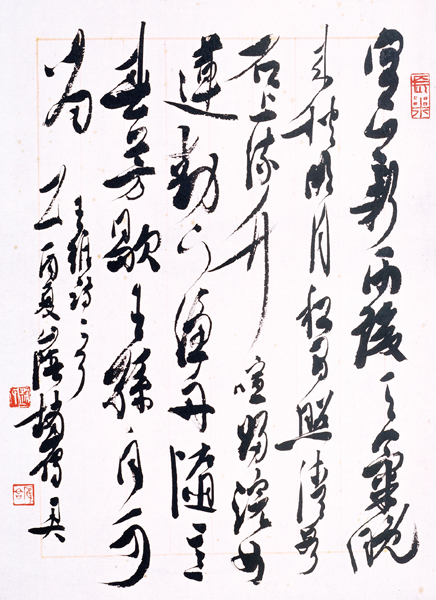 空山新雨後天氣晚
来秋明月松間照清泉
石上流竹喧歸浣女
蓮動下漁舟隨意
春芳歇王孫自可
留
王維詩一首
乙酉夏山陰